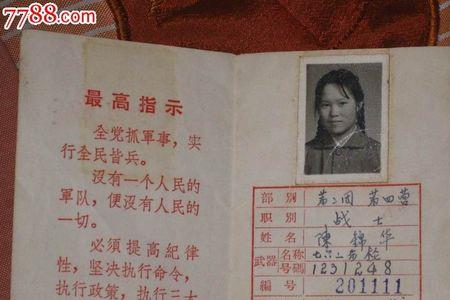 7788.com
最高指示
全党抓軍事，实
行全民皆兵。
沒有一个人民的
軍队，便沒有人民的
一切。
必须提高紀律
性，坚决执行命令，
执行政策，执行三大
部別 第二团 第四营
职別 战士
姓名 陳錦华
武器 名称 七六二步枪
号碼 1231248
編号 201111